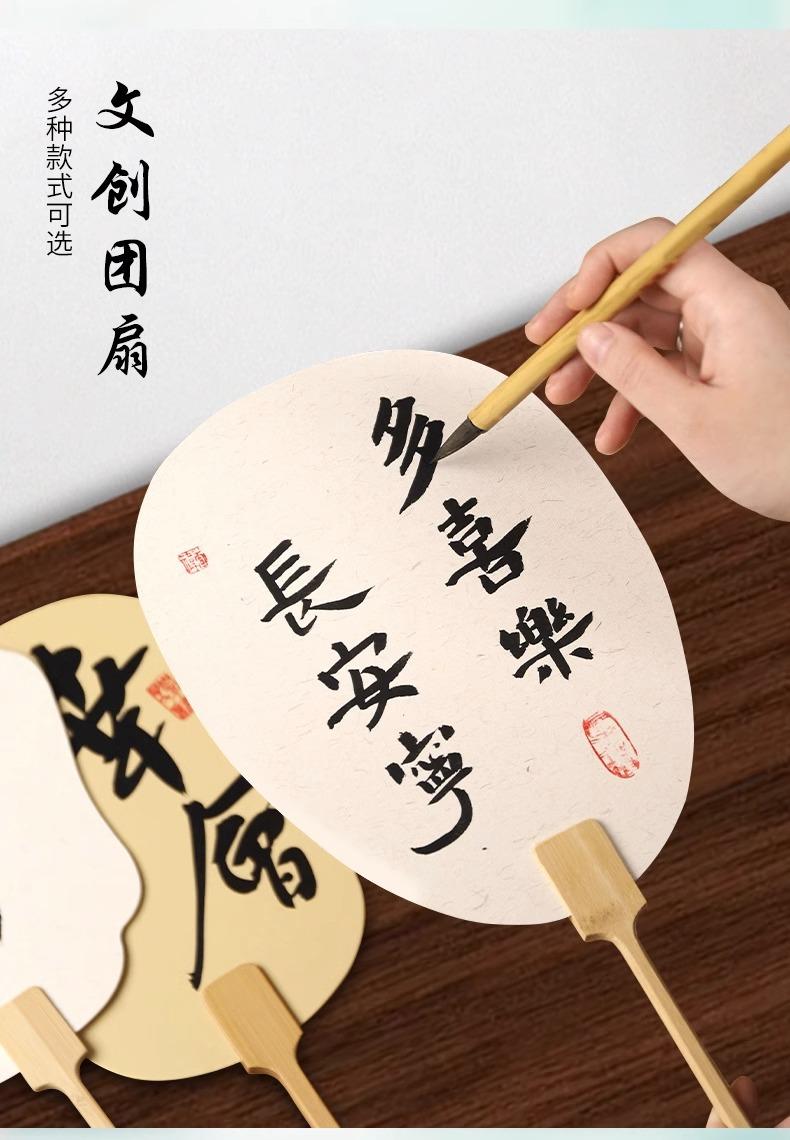 文创团扇
多种款式可选
多喜樂
長安寧